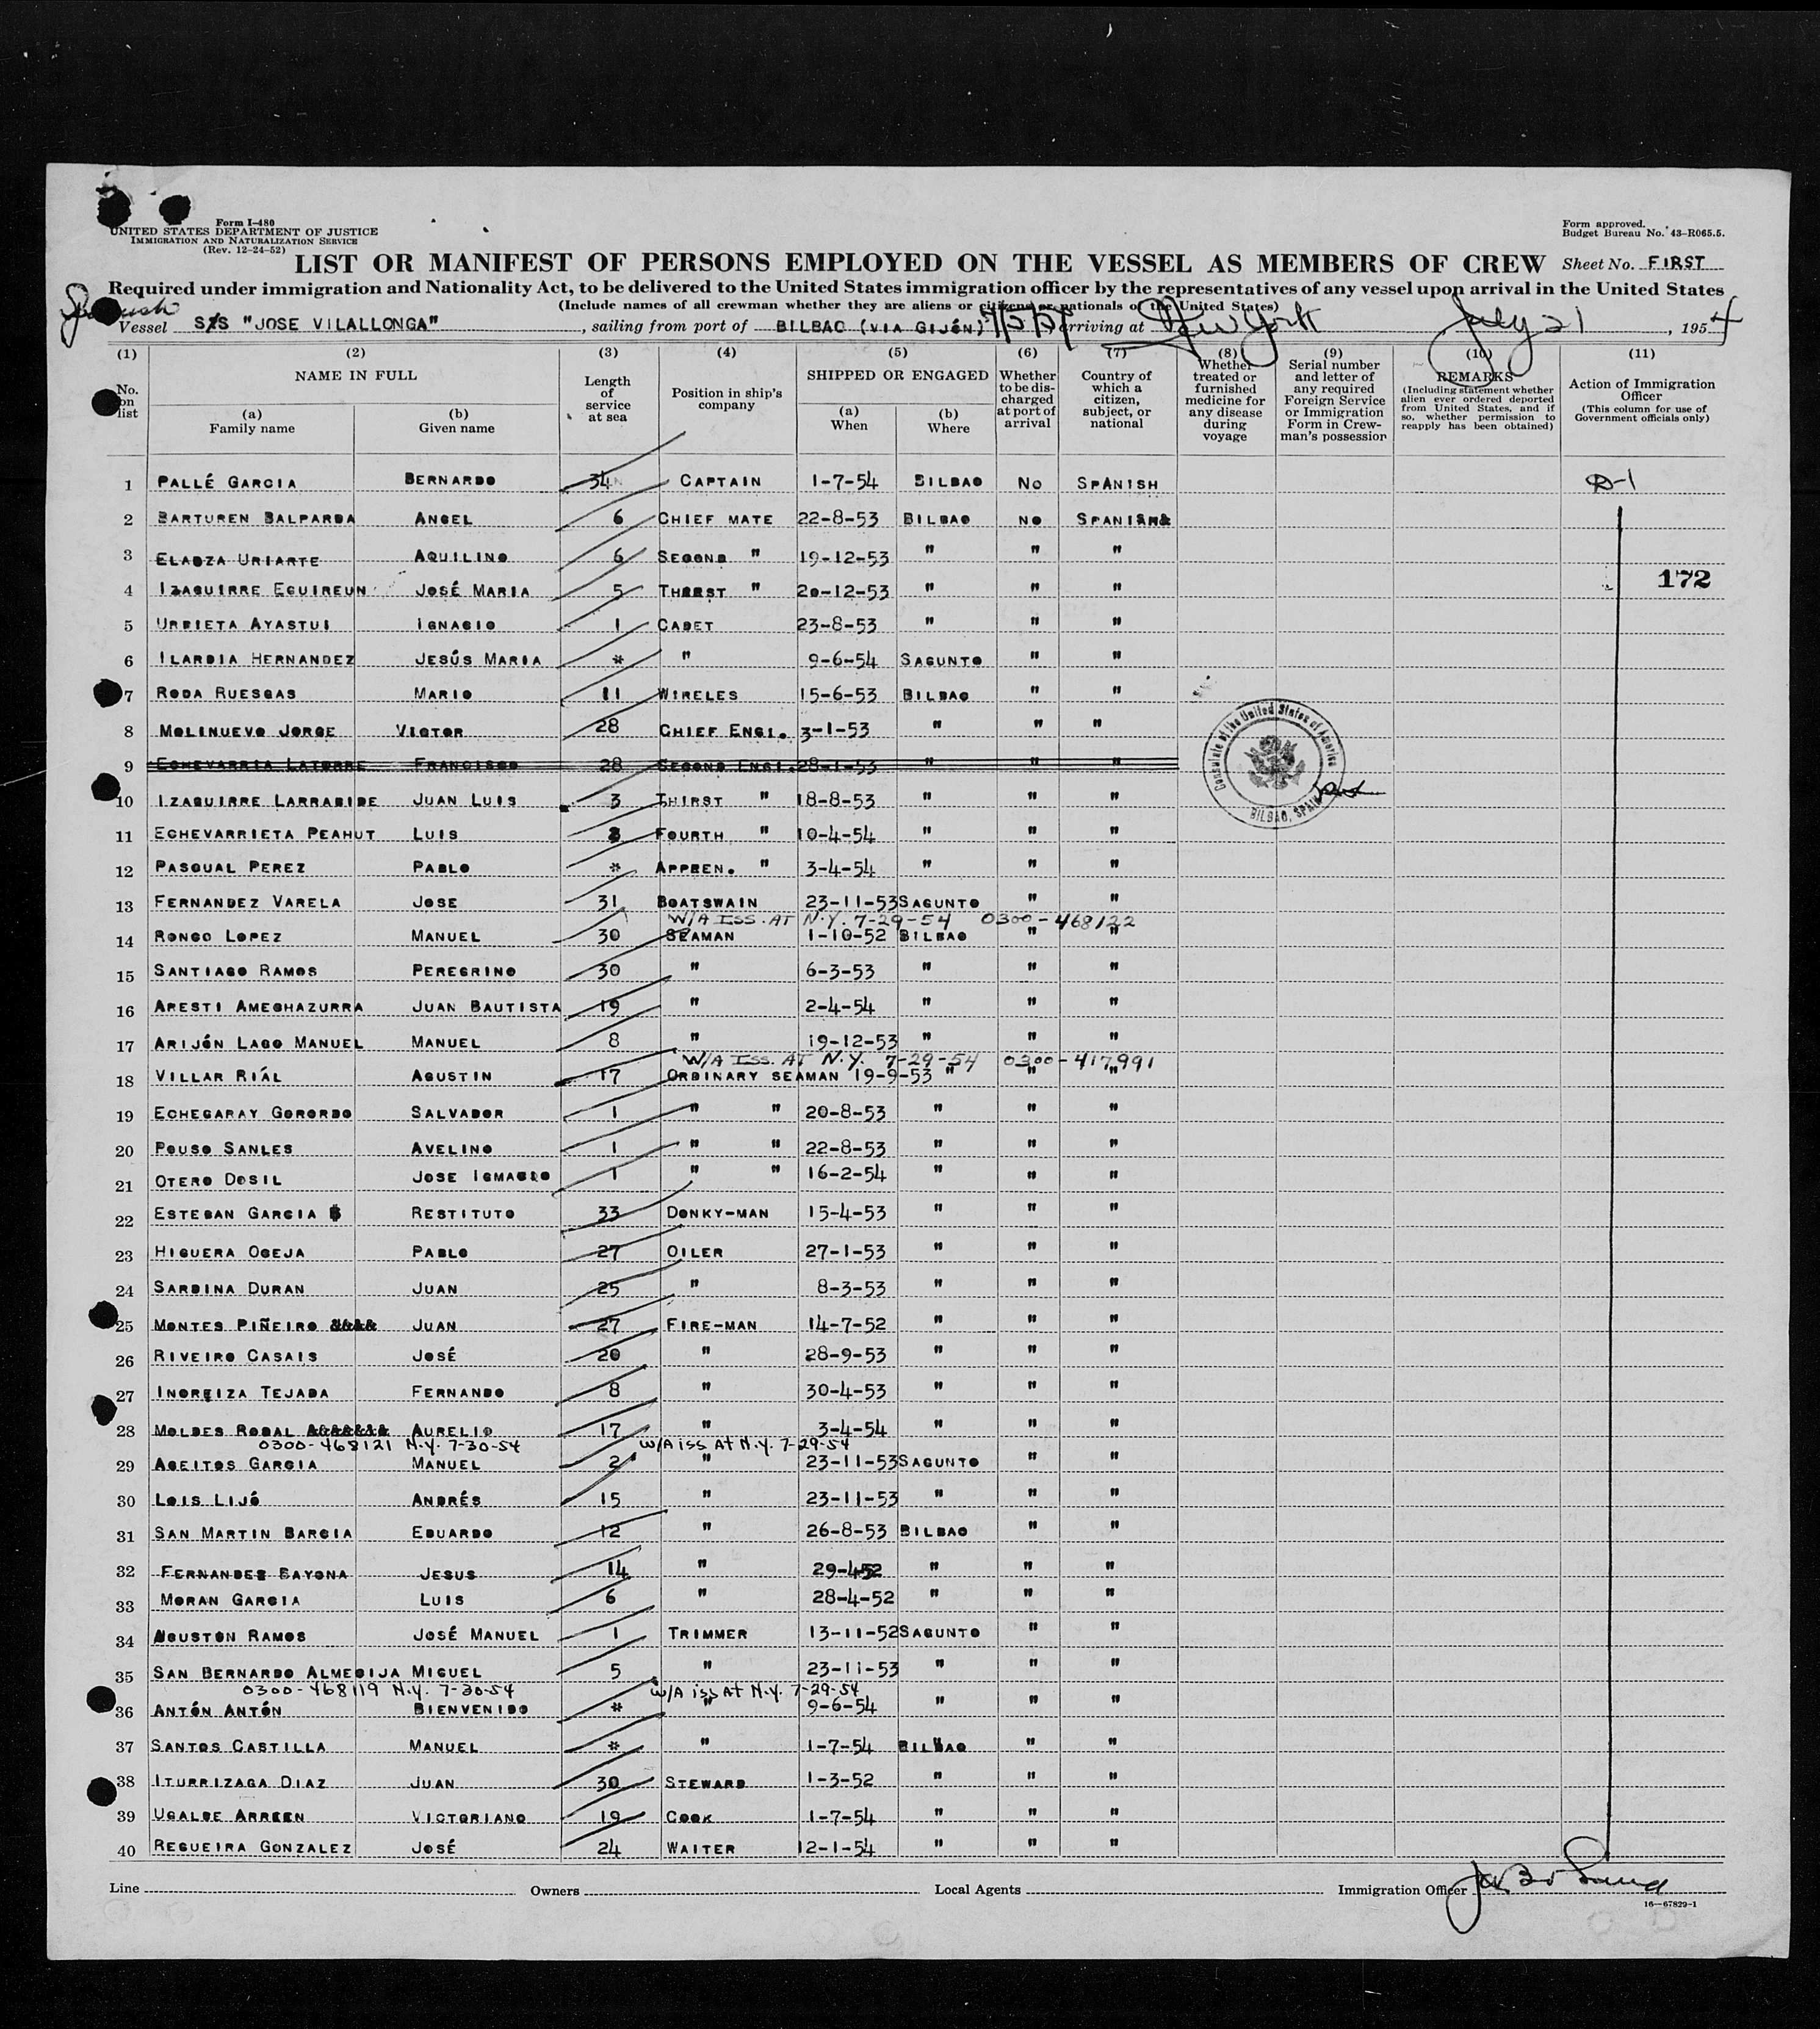 Form I-480
UNITED STATES DEPARTMENT OF JUSTICE
IMMIGRATION AND NATURALIZATION SERVICE
(Rev. 12-24-52)
Form approved.
Budget Bureau No. 43-R065.5.
LIST OR MANIFEST OF PERSONS EMPLOYED ON THE VESSEL AS MEMBERS OF CREW Sheet No. FIRST
Required under immigration and Nationality Act, to be delivered to the United States immigration officer by the representatives of any vessel upon arrival in the United States
(Include names of all crewman whether they are aliens or citizens or nationals of the United States)
Spanish
Vessel S/S "JOSE VILALLONGA", sailing from port of BILBAO (VIA GIJÓN) arriving at New York July 21, 1954
(1) (2) (3) (4) (5) (6) (7) (8) (9) (10) (11)
No. on list
NAME IN FULL
(a) Family name
(b) Given name
Length of service at sea
Position in ship's company
SHIPPED OR ENGAGED
(a) When
(b) Where
Whether to be discharged at port of arrival
Country of which a citizen, subject, or national
Whether treated or furnished medicine for any disease during voyage
Serial number and letter of any required Foreign Service or Immigration Form in Crewman's possession
REMARKS
(Including statement whether alien ever ordered deported from United States, and if so, whether permission to reapply has been obtained)
Action of Immigration Officer
(This column for use of Government officials only)
1 PALLÉ GARCIA BERNARDO 34 CAPTAIN 1-7-54 BILBAO NO SPANISH D-1
2 BARTUREN BALPARDA ANGEL 6 CHIEF MATE 22-8-53 BILBAO NO SPANISH
3 ELAOZA URIARTE AQUILINO 6 SECOND " 19-12-53 " " "
172
4 IZAGUIRRE EGUIREUN JOSÉ MARIA 5 " 20-12-53 " " "
5 URBIETA AYASTUI IGNACIO 1 CADET 23-8-53 " " "
6 ILARDIA HERNANDEZ JESÚS MARIA * " 9-6-54 SAGUNTO " "
7 RODA RUESGAS MARIO 11 WIRELES 15-6-53 BILBAO " "
8 MOLINUEVO JORGE VICTOR 28 CHIEF ENGI. 3-1-53 " " "
9 ECHEVARRIA LATORRE FRANCISCO 28 SECOND ENGI. 28-1-53 " " "
Consulate of the United States of America
BILBAO, SPAIN
10 IZAGUIRRE LARRABIDE JUAN LUIS 3 THIRST " 18-8-53 " " "
11 ECHEVARRIETA PEAHUT LUIS FOURTH " 10-4-54 " " "
12 PASQUAL PEREZ PABLO * APPREN. " 3-4-54 " " "
13 FERNANDEZ VARELA JOSE 31 BOATSWAIN 23-11-53 SAGUNTO " "
W/A ISS. AT N.Y. 7-29-54 0300-468122
14 RONGO LOPEZ MANUEL 30 SEAMAN 1-10-52 BILBAO " "
15 SANTIAGO RAMOS PEREGRINO 30 " 6-3-53 " " "
16 ARESTI AMEGHAZURRA JUAN BAUTISTA 19 " 2-4-54 " " "
17 ARIJÓN LAGO MANUEL MANUEL 8 " 19-12-53 " " "
W/A ISS. AT N.Y. 7-29-54 0300-417,991
18 VILLAR RIÁL AGUSTIN 17 ORDINARY SEAMAN 19-9-53 " " "
19 ECHEGARAY GORORDO SALVADOR 1 " " 20-8-53 " " "
20 POUSO SANLES AVELINO 1 " " 22-8-53 " " "
21 OTERO DOSIL JOSE IGMACIO 1 " " 16-2-54 " " "
22 ESTEBAN GARCIA RESTITUTO 33 DONKY-MAN 15-4-53 " " "
23 HIGUERA OCEJA PABLO 27 OILER 27-1-53 " " "
24 SARDINA DURAN JUAN 25 " 8-3-53 " " "
25 MONTES PIÑEIRO JUAN 27 FIRE-MAN 14-7-52 " " "
26 RIVEIRO CASAIS JOSÉ 20 " 28-9-53 " " "
27 INOREIZA TEJADA FERNANDO 8 " 30-4-53 " " "
28 MOLDES ROBAL AURELIO 17 " 3-4-54 " " "
0300-468121 N.Y. 7-30-54 W/A iss At N.Y. 7-29-54
29 AGEITOS GARCIA MANUEL 2 " 23-11-53 SAGUNTO " "
30 LOIS LIJÓ ANDRÉS 15 " 23-11-53 " " "
31 SAN MARTIN BARCIA EDUARDO 12 " 26-8-53 BILBAO " "
32 FERNANDES BAYONA JESUS 14 " 29-452 " " "
33 MORAN GARCIA LUIS 6 " 28-4-52 " " "
34 AGUSTON RAMOS JOSÉ MANUEL 1 TRIMMER 13-11-52 SAGUNTO " "
35 SAN BERNARDO ALMEDIJA MIGUEL 5 " 23-11-53 " " "
0300-468119 N.Y. 7-30-54 W/A iss At N.Y. 7-29-54
36 ANTÓN ANTÓN BIENVENIDO * " 9-6-54 " " "
37 SANTOS CASTILLA MANUEL * " 1-7-54 BILBAO " "
38 ITURRIZAGA DIAZ JUAN 30 STEWARD 1-3-52 " " "
39 UGALDE ARREEN VICTORIANO 19 COOK 1-7-54 " " "
40 REGUEIRA GONZALEZ JOSÉ 24 WAITER 12-1-54 " " "
Line Owners Local Agents Immigration Officer
16—67829-1